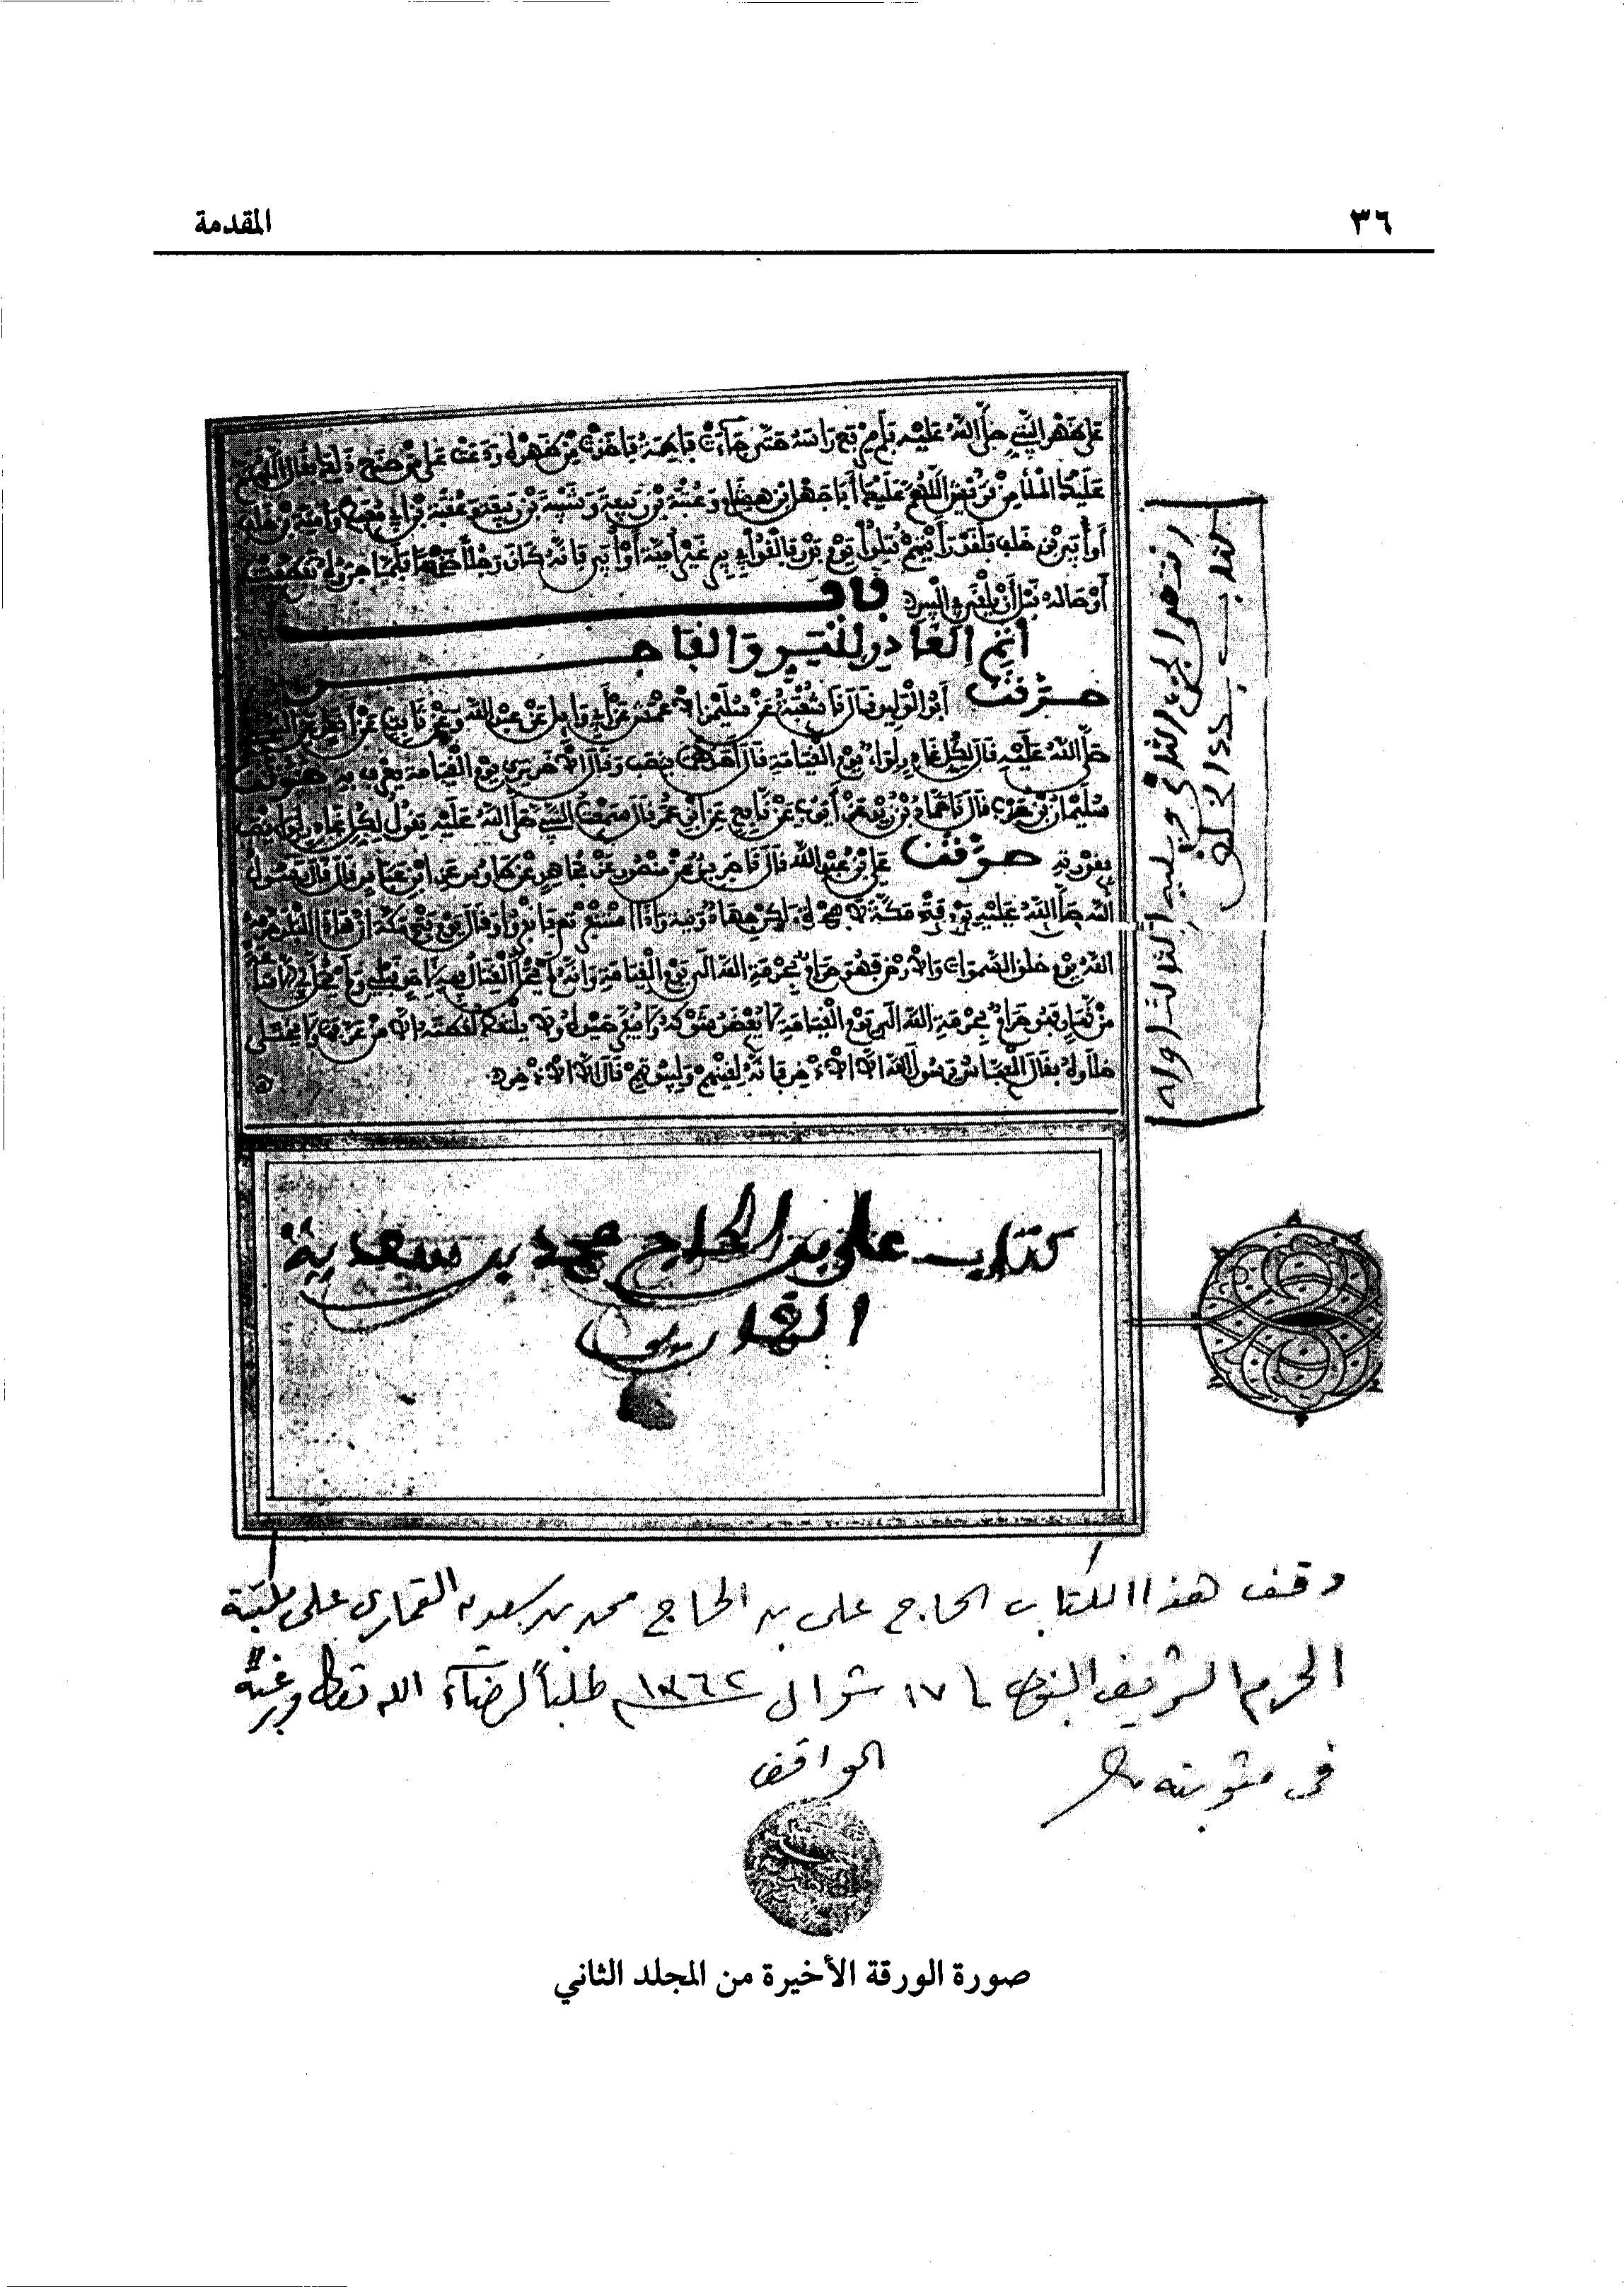 ٣٦
المقدمة
على ظهر النبي صلى الله عليه فلم يرفع رأسه حتى جاءت فاطمة فأخذت من ظهره ودعت على من صنع ذلك فقال اللهم
عليك الملأ من قريش اللهم عليك أبا جهل بن هشام وعتبة بن ربيعة وشيبة بن ربيعة وعقبة بن أبي معيط وأمية بن خلف
أو أبي بن خلف فلقد رأيتهم قتلوا يوم بدر فألقوا في بير غير أمية أو أبي فإنه كان رجلا ضخما فلما جروه تقطعت
أوصاله قبل أن يلقى في البير باب
إثم الغادر للبر والفاجر
حدثنا أبو الوليد قال نا شعبة عن سليمان الأعمش عن أبي وايل عن عبد الله وعن ثابت عن أنس عن النبي
صلى الله عليه قال لكل غادر لواء يوم القيامة قال أحدهما ينصب وقال الآخر يرى يوم القيامة يعرف به حدثنا
سليمان بن حرب قال نا حماد بن زيد عن أيوب عن نافع عن ابن عمر قال سمعت النبي صلى الله عليه يقول لكل غادر لواء ينصب
بغدرته حدثنا علي بن عبد الله قال نا جرير عن منصور عن مجاهد عن طاوس عن ابن عباس قال قال رسول
الله صلى الله عليه يوم فتح مكة لا هجرة ولكن جهاد ونية وإذا استنفرتم فانفروا وقال يوم فتح مكة إن هذا البلد حرمه
الله يوم خلق السموات والأرض فهو حرام بحرمة الله إلى يوم القيامة وإنه لم يحل القتال فيه لأحد قبلي ولم يحل لي إلا ساعة
من نهار فهو حرام بحرمة الله إلى يوم القيامة لا يعضد شوكه ولا ينفر صيده ولا يلتقط لقطته إلا من عرفها ولا يختلى
خلاه فقال العباس يرسول الله إلا الإذخر فإنه لقينهم ولبيوتهم قال إلا الإذخر
انتهى الجزء الثاني ويليه الثالث اوله
كتاب بدء الخلق
كتاب علي بن الحاج محمد بن سعدية
القماري
وقف هذا الكتاب الحاج علي بن الحاج محمد بن سعدية القماري على مكتبة
الحرم الشريف النبوي في ١٧ شوال ١٣٦٢ طلباً لرضاء الله تعالى ورغبةً
في مثوبته
الواقف
صورة الورقة الأخيرة من المجلد الثاني